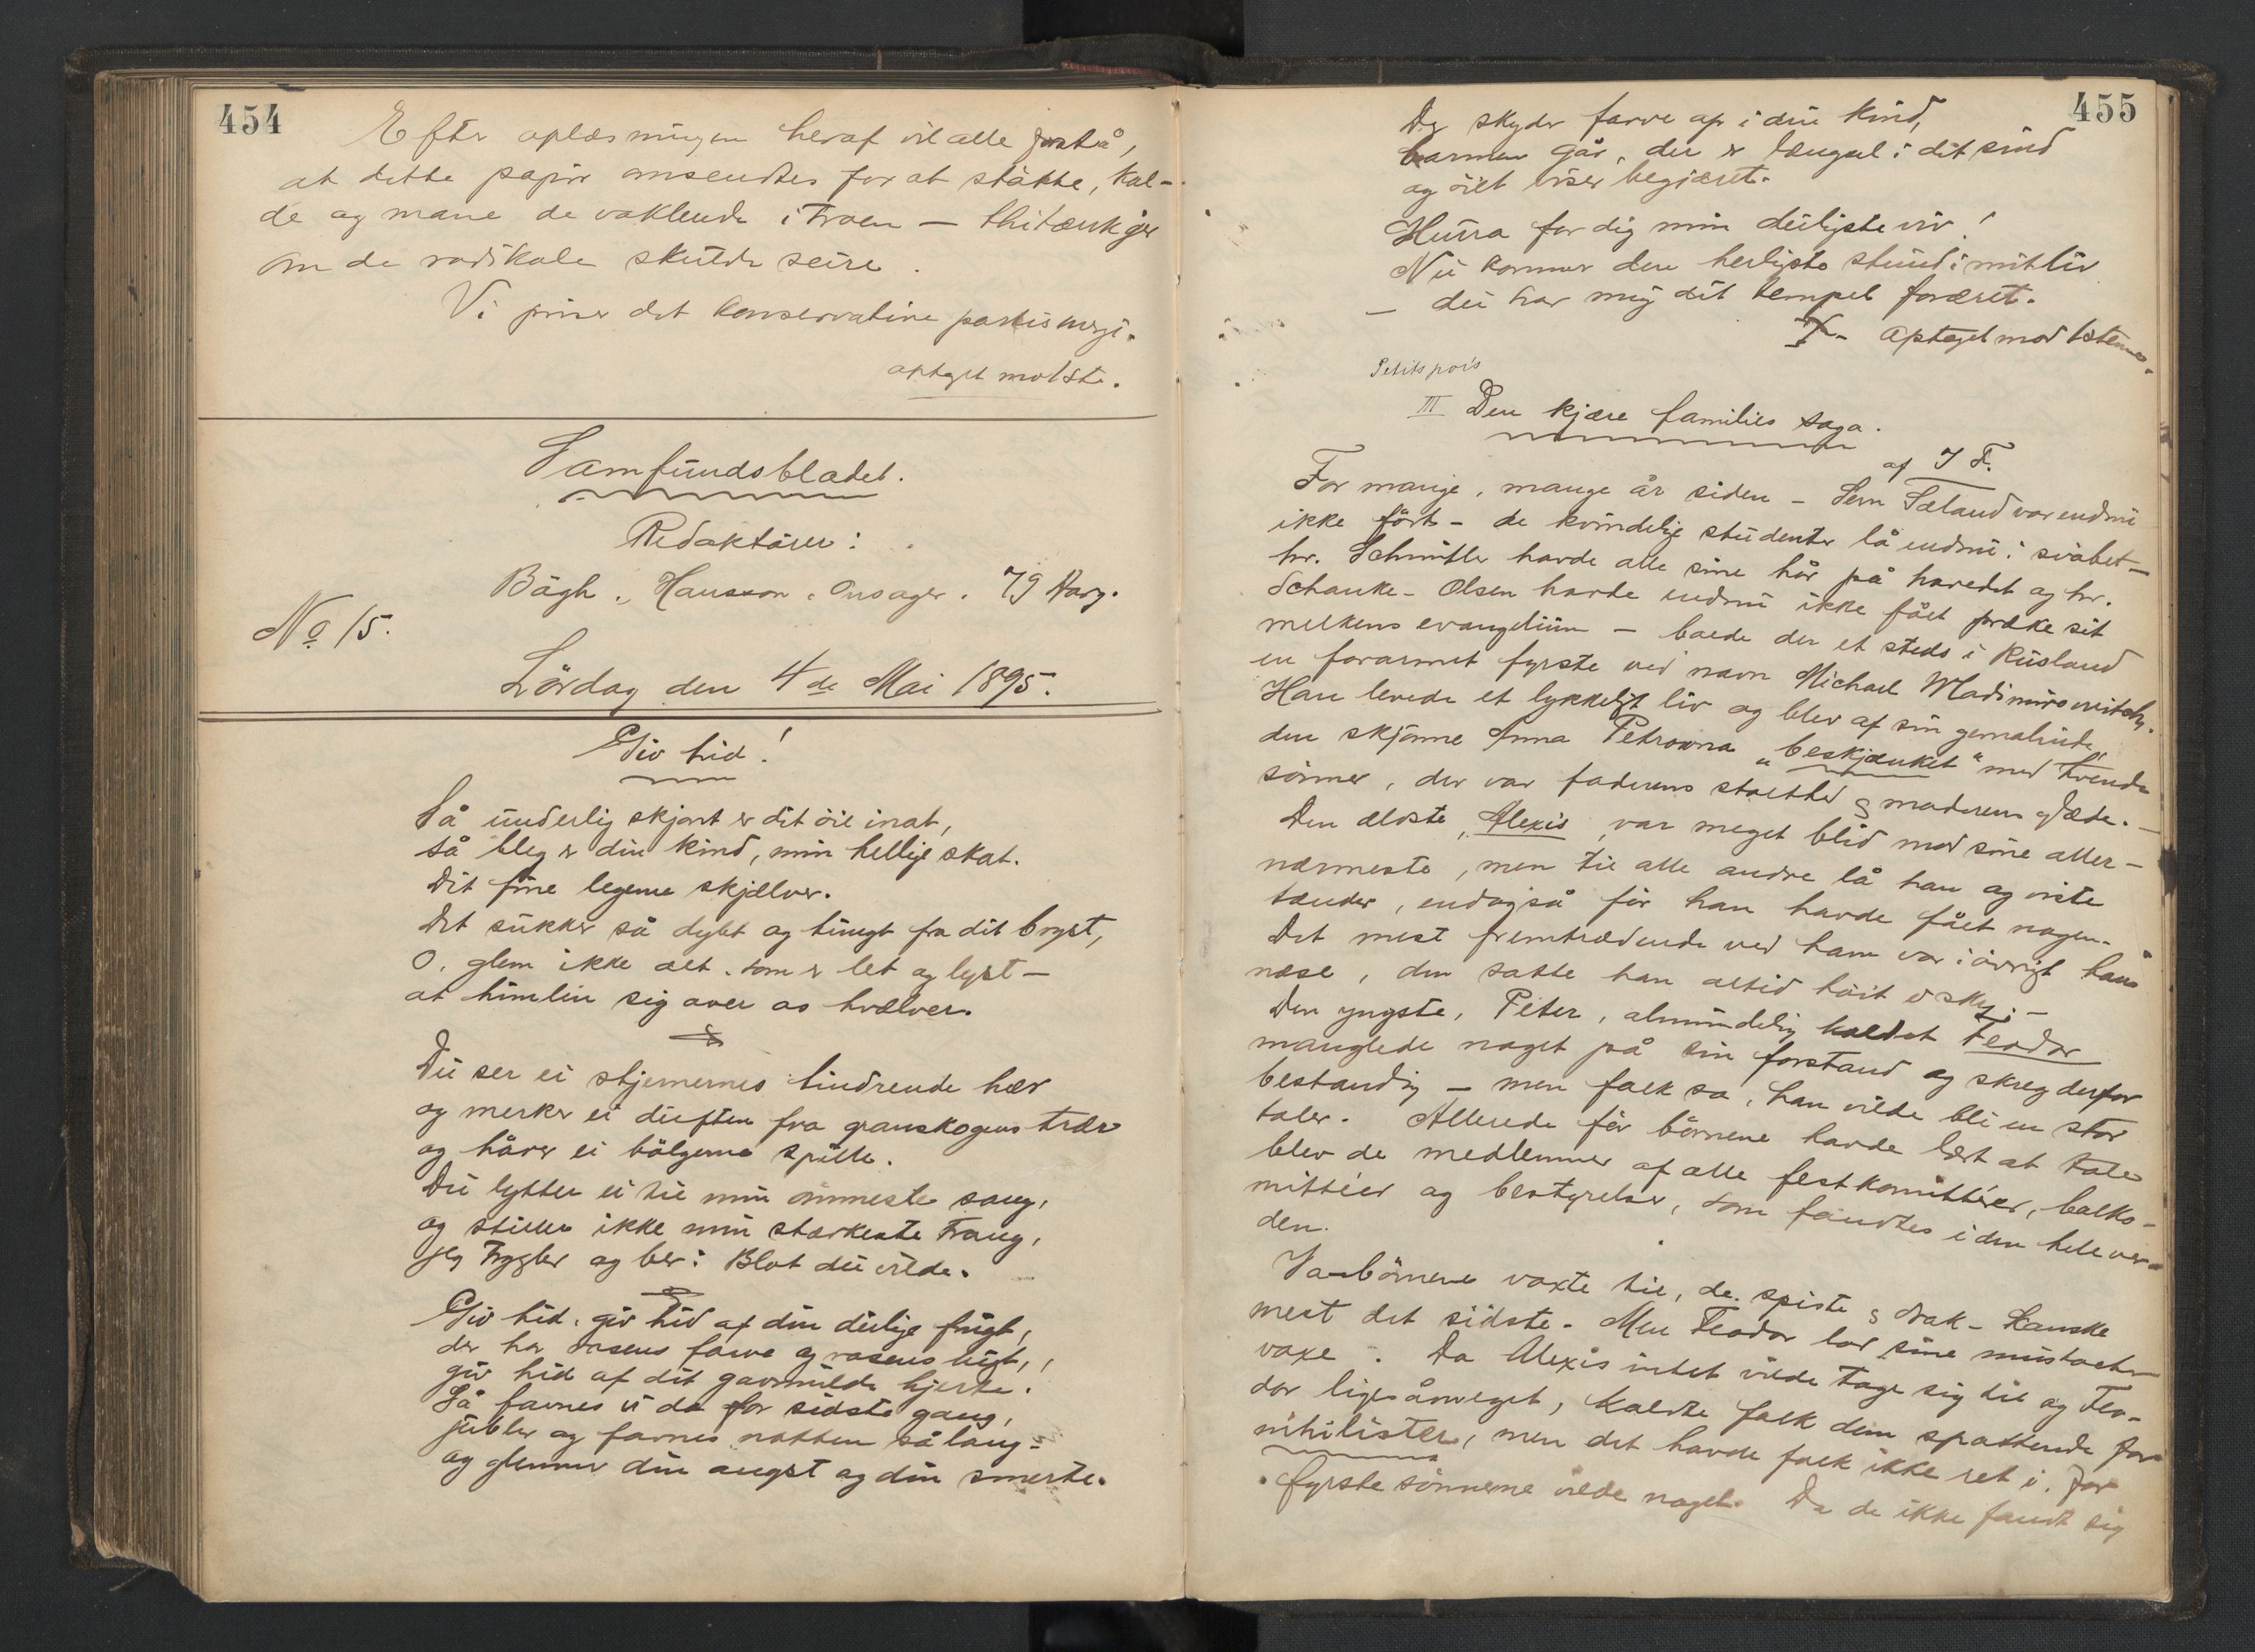 454
Efter oplæsningen heraf vil alle forstå,
at dette papir omsendtes for at støtte, kal-
de og mane de vaklende i troen — thi tænk jer
om de radikale skulde seire.
Vi priser det konservative partis
optaget mot st.
Samfundsbladet.
Redaktører:
Bøgh. Hansson. Onsager.
No 15.
Lördag den 4de Mai 1895.
Giv hid!
Så underlig skjønt er dit öie inat,
så bleg er din kind, min hellige skat.
Dit fine legeme skjælver.
Det sukker så dybt og tungt fra dit bryst,
O, glem ikke alt, som er let og lyst —
at himlen sig over os hvælver.
Du ser ei stjernernes tindrende hær
og merker ei duften fra granskogens trær
og hører ei bölgerne spille.
Du lytter ei til min ömmeste sang,
og stiller ikke min stærkeste trang,
jeg trygler og ber: Blot du vilde.
Giv hid, giv hid af din deilige frugt,
der har rosens farve og rosens lugt,
giv hid af dit gavmilde hjerte!
Så favnes vi da for sidste gang,
jubler og favnes natten så lang
og glemmer din angst og din smerte.
455
Der skyder farve op i din kind,
barmen går, der er længsel i dit sind
og öiet viser begjæret.
Hurra for dig min deiligste viv!
Nu kommer den herligste stund i mit liv
— du har mig dit tempel foræret.
X. Optaget mod 1 stemme.
Petits pois
III Den kjære families saga.
af I F.
For mange, mange år siden — Sem Sæland var endnu
ikke födt — de kvindelige studenter lå endnu i svöbet —
hr. Schnitler havde alle sine hår på hovedet og hr.
Schanke-Olsen havde endnu ikke fået præke sit
melkens evangelium — boede der et steds i Rusland
en forarmet fyrste ved navn Michael Wladimirowitch.
Han levede et lykkeligt liv og blev af sin gemalinde,
den skjönne Anna Petrowna „beskjænket“ med tvende
sönner, der var faderens stolthed & moderens glæde. —
Den ældste, Alexis, var meget blid mod sine aller-
nærmeste, men til alle andre lå han og viste
tænder, endog så för han havde fået nogen.
Det mest fremtrædende ved ham var iövrigt hans
næse, den satte han altid höit i sky. —
Den yngste, Peter, almindelig kaldet Feodor
manglede noget på sin forstand og skreg derfor
bestandig — men folk sa, han vilde bli en stor
taler. Allerede för börnene havde lært at tale
blev de medlemmer af alle festkomittéer, balko-
mittéer og bestyrelser, som fandtes i den hele ver-
den.
Ja börnene voxte til, de spiste & drak — kanske
mest det sidste. Men Feodor lod sine mustacher
voxe. Da Alexis intet vilde tage sig til og Feo-
dor ligesåmeget, kaldte folk dem spottende for
nihilister, men det havde folk ikke ret i, for
fyrstesönnerne vilde noget. Da de ikke fandt sig